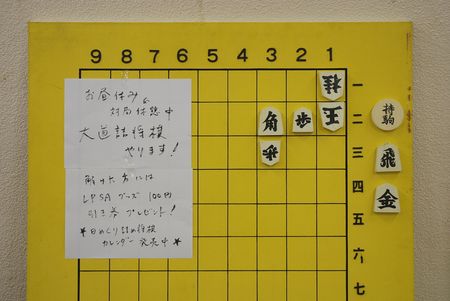 9 8 7 6 5 4 3 2 1
お昼休み&
対局休憩中
大道詰将棋
やります!
解けた方には
LPSAグッズ 100円
引き券プレゼント!
*日めくり詰め将棋
カレンダー発売中*
桂
角 歩 王
一
二
三
四
五
六
七
持駒
飛
金